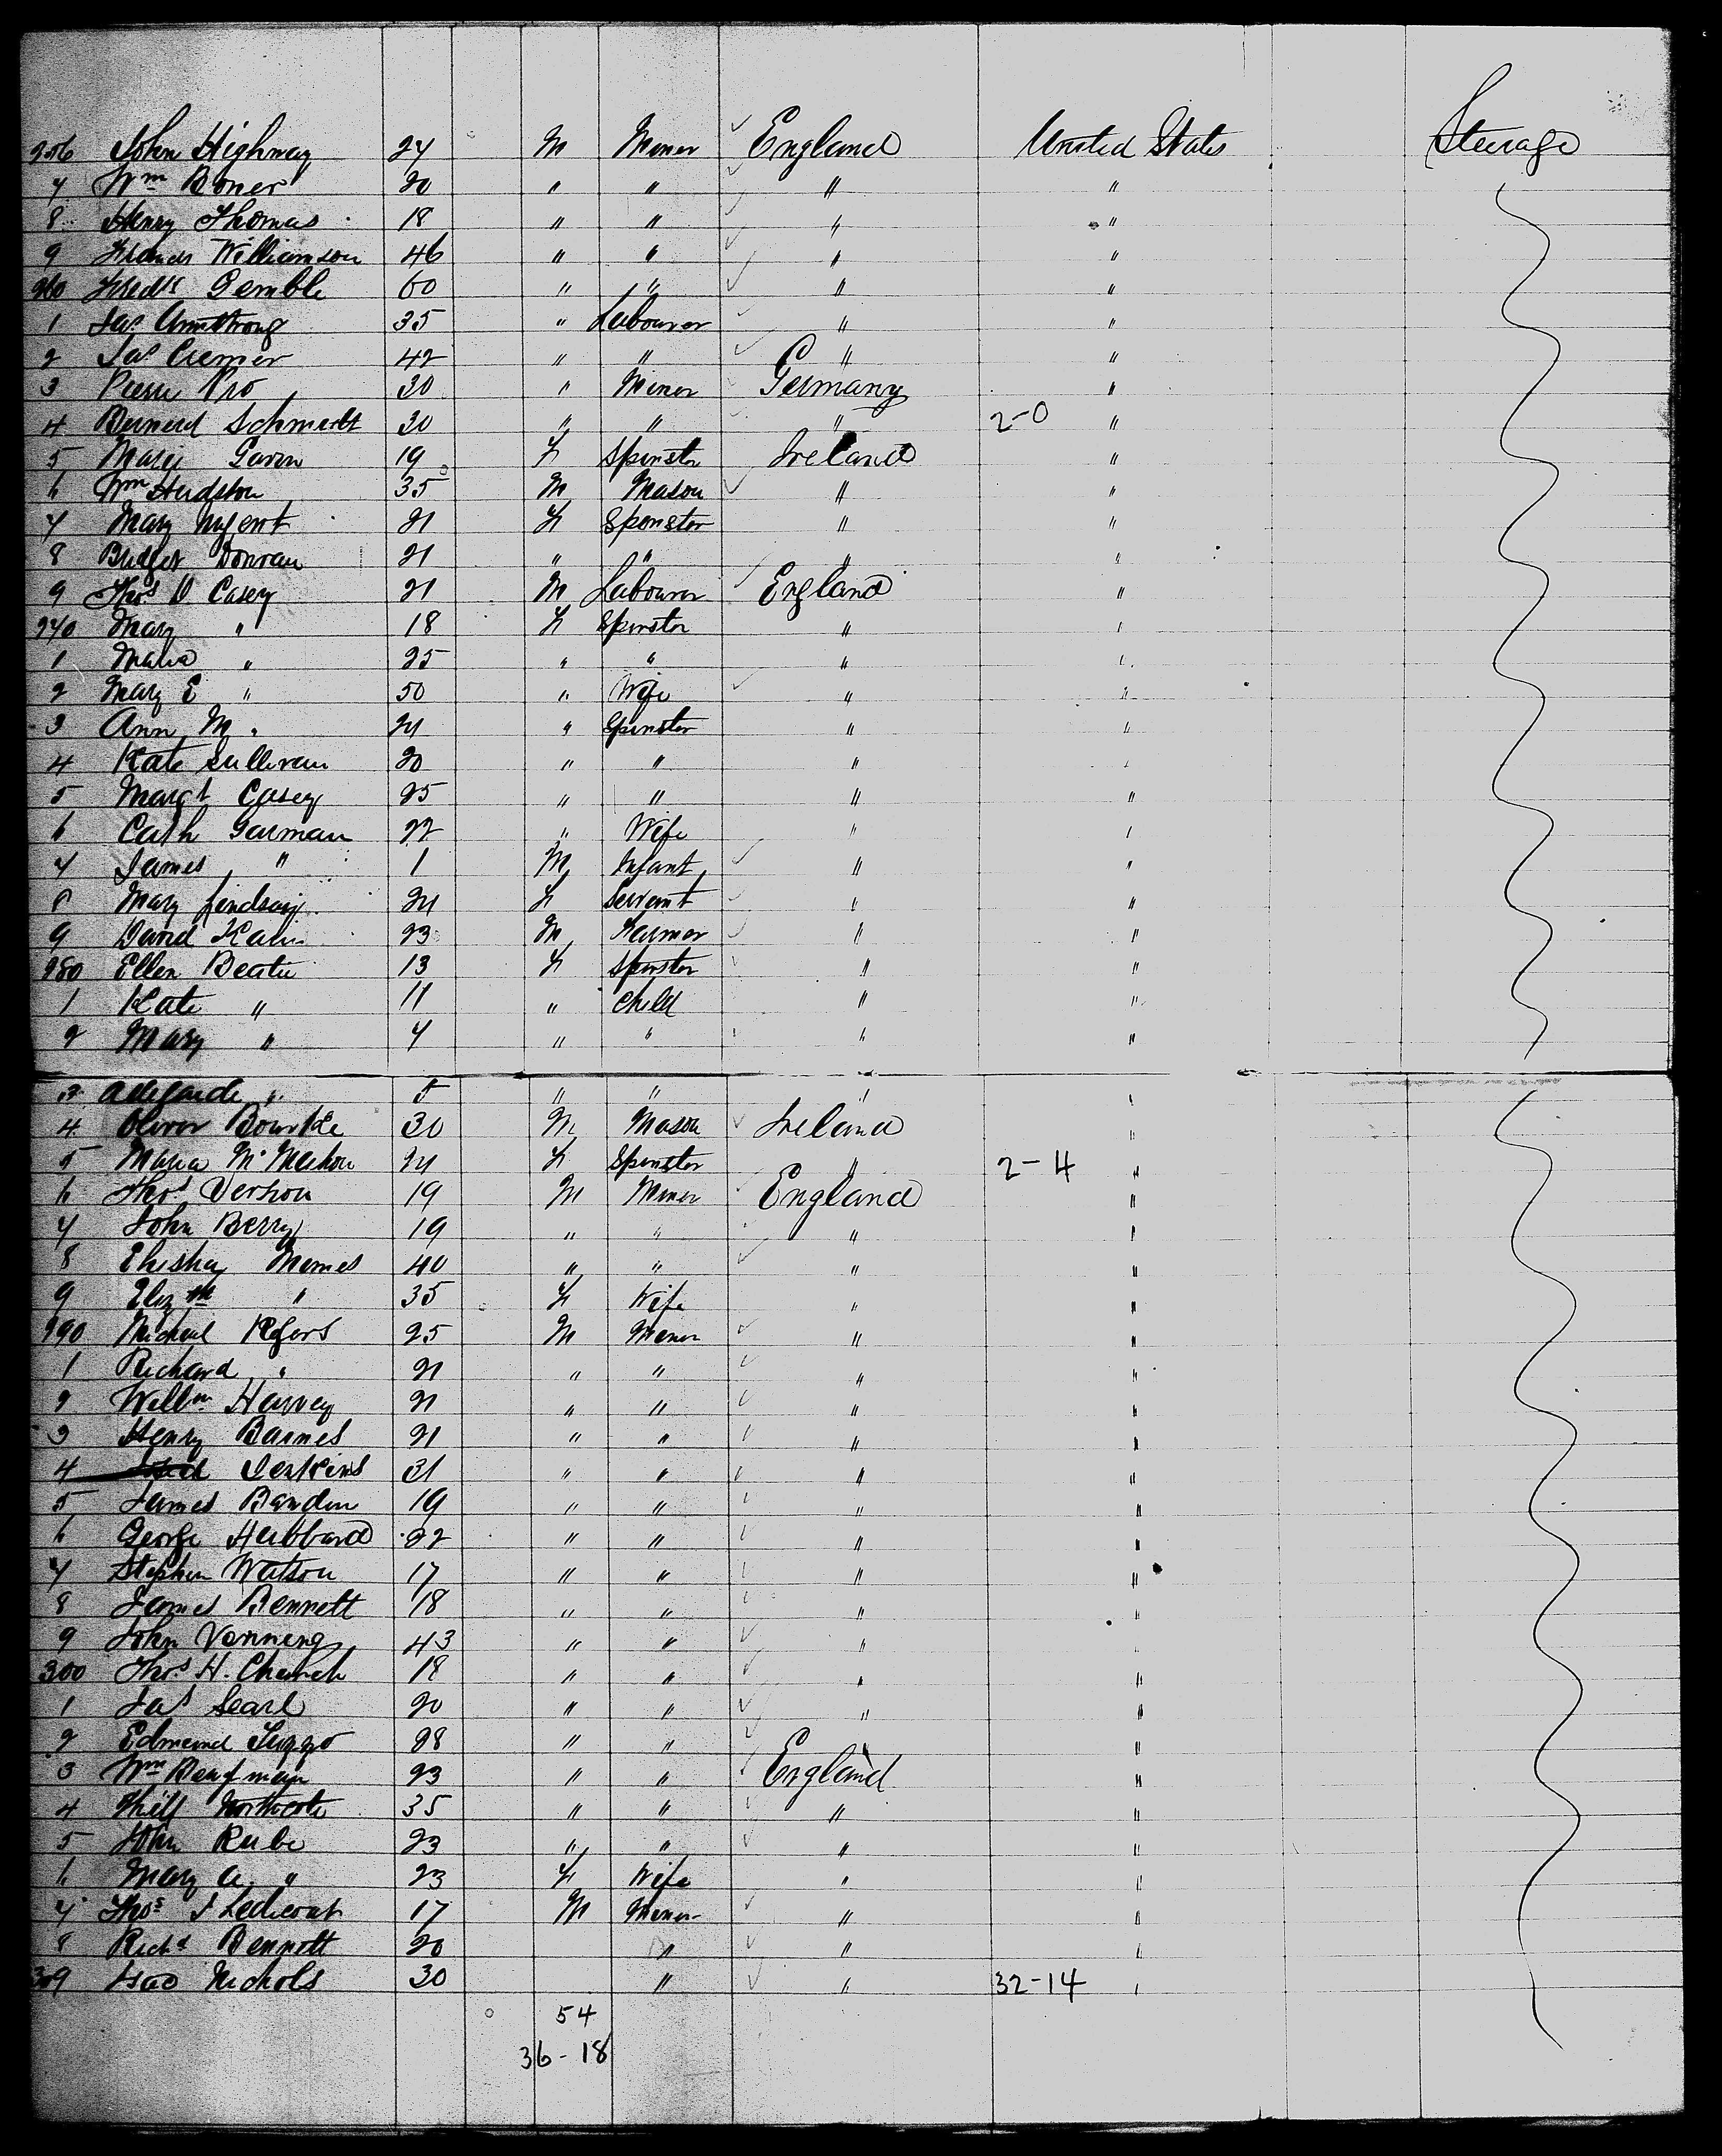 256 John Highway 24 M Miner England United States Steerage
7 Wm Boner 20 " " " "
8 Henry Thomas 18 " " " "
9 Francis Williamson 46 " " " "
260 Gemble 60 " " " "
1 Jas Armstrong 35 " Labourer " "
2 Jas Cremer 42 " " " "
3 Pierre Pro 30 " Miner Germany "
4 Bernard Schmidt 30 " " " 2-0 "
5 Mary Gavin 19 F Spinster Ireland "
6 Wm Hudston 35 M Mason " "
7 Mary Nugent 21 F Spinster " "
8 Bridget Donvan 21 " " " "
9 Thos D Casey 21 M Labourer England "
270 Mary " 18 F Spinster " "
1 Maria " 25 " " " "
2 Mary E " 50 " Wife " "
3 Ann M " 21 " Spinster " "
4 Kate Sullivan 20 " " " "
5 Margt Casey 25 " " " "
6 Cath Garman 22 " Wife " "
7 James " 1 M Infant " "
8 Mary Lindsay 24 F Servant " "
9 David 23 M Farmer " "
280 Ellen Beatie 13 F Spinster " "
1 Kate " 11 " Child " "
2 Mary " 7 " " " "
3 Adelaide " 5 " " " "
4 Oliver Bourke 30 M Mason Ireland "
5 Maria McMahon 24 F Spinster " 2-4 "
6 Thos Vernon 19 M Miner England "
7 John Berry 19 " " " "
8 Elisha 40 " " " "
9 Elizth " 35 F Wife " "
290 Micheal Rogers 25 M Miner " "
1 Richard " 21 " " " "
2 Willm Harvey 21 " " " "
3 Henry Barnes 21 " " " "
4 Jenkins 31 " " " "
5 James 19 " " " "
6 George Hubbard 22 " " " "
7 Stephen Watson 17 " " " "
8 James Bennett 18 " " " "
9 John Vanning 43 " " " "
300 Thos H. Church 18 " " " "
1 Jas Searl 20 " " " "
2 Edmund 28 " " " "
3 Wm 23 " " England "
4 Northcote 35 " " " "
5 John Rube 23 " " " "
6 Mary A " 23 F Wife " "
7 Thos 17 M Miner " "
8 Richd Bennett 20 " " "
309 Isac Nichols 30 " " 32-14 "
54
36-18